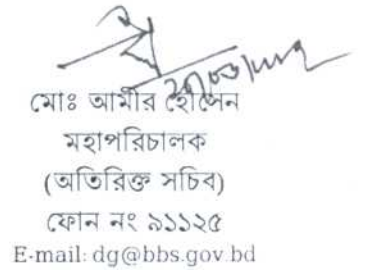 মোঃ আমীর হোসেন
মহাপরিচালক
(অতিরিক্ত সচিব)
ফোন নং ৯১১২৫
E-mail: dg@bbs.gov.bd